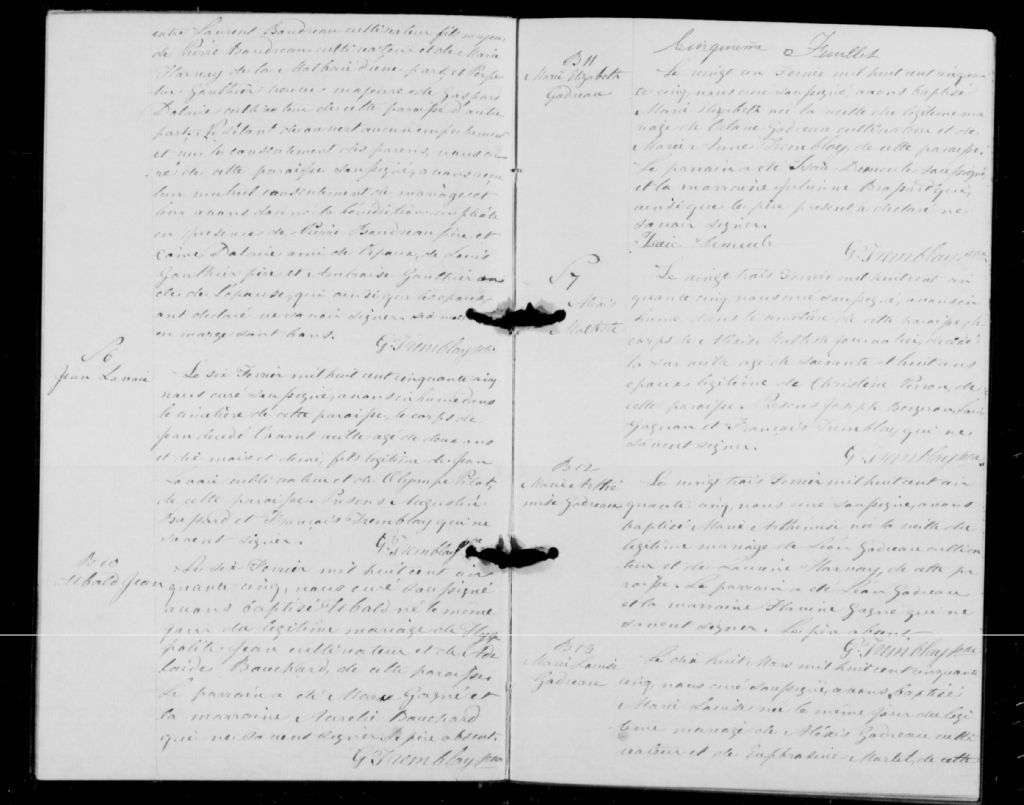 entre Laurent Baudreau cultivateur fils majeur
de Pierre Baudreau cultivateur et de Marie
Harvay de la Malbaie d'une part, et
Gauthier veuve majeure de Gaspard
Dalaire cultivateur de cette paroisse d'autre
part, ne s'étant découvert aucun empêchement
et vu le consentement des parens, nous cu
ré de cette paroisse soussigné, avons reçu
leur mutuel consentement de mariage et
leur avons donné la bénédiction nuptiale
en présence de Pierre Baudreau père et
Dalaire ami de l'époux, de Louis
Gauthier père et Ambroise Gauthier on
cle de l'épouse, qui ainsi que les époux,
ont déclaré ne savoir signer.
en marge sont bons.
G. Tremblay ptre
S6
Jean Lavoie
Le six Fevrier mil huit cent cinquante cinq
nous curé soussigné, avons inhumé dans
le cimetière de cette paroisse, le corps de
Jean décédé l'avant veille agé de deux ans
et dix mois et demi, fils légitime de Jean
Lavoie cultivateur et de Olympe Pilot,
de cette paroisse. Présens Augustin
Brassard et François Tremblay qui ne
savent signer.
G. Tremblay ptre
B10
Ubald Jean
Le six Fevrier mil huit cent cin
quante cinq, nous curé soussigné
avons baptisé Ubald né le même
jour du légitime mariage de Hyp
polite Jean cultivateur et de Adé
laide Bouchard, de cette paroisse.
Le parrain a été Marc Gagné et
la marraine Aurelie Bouchard
qui ne savent signer. Le père absent.
G. Tremblay ptre
Cinquième Feuillet
B11
Marie Elizabeth
Gadreau
Le vingt un Fevrier mil huit cent cinquan
te cinq, nous curé soussigné, avons baptisé
Marie Elizabeth née la veille du légitime ma
riage de Octave Gadreau cultivateur et de
Marie Anne Tremblay, de cette paroisse.
Le parrain a été Isaïe Demeule soussigné
et la marraine Julienne Brassard qui,
ainsi que le père présent, a déclaré ne
savoir signer.
Isaïe Demeule
G. Tremblay ptre
S7
Alexis
Maltête
Le vingt trois Fevrier mil huit cent cin
quante cinq, nous curé soussigné, avons in
humé dans le cimetière de cette paroisse, le
corps de Alexis Maltête journalier, décédé
la agé de soixante et huit ans
époux légitime de Christine Perron, de
cette paroisse. Présens Joseph Bergeron, Louis
Gagnon et François Tremblay, qui ne
savent signer.
G. Tremblay ptre
B12
Marie Arthé
mise Gadreau
Le vingt trois Fevrier mil huit cent cin
quante cinq, nous curé soussigné, avons
baptisé Marie Arthemise née la veille du
légitime mariage de Léon Gadreau cultiva
teur et de Harvay, de cette pa
roisse. Le parrain a été Léon Gadreau
et la marraine Gagné qui ne
savent signer. Le père absent
G. Tremblay ptre
B13
Marie Louise
Gadreau
Le dix huit Mars mil huit cent cinquante
cinq, nous curé soussigné, avons baptisé
Marie Louise née le même jour du légi
time mariage de Alexis Gadreau culti
vateur et de Euphrosine Martel, de cette